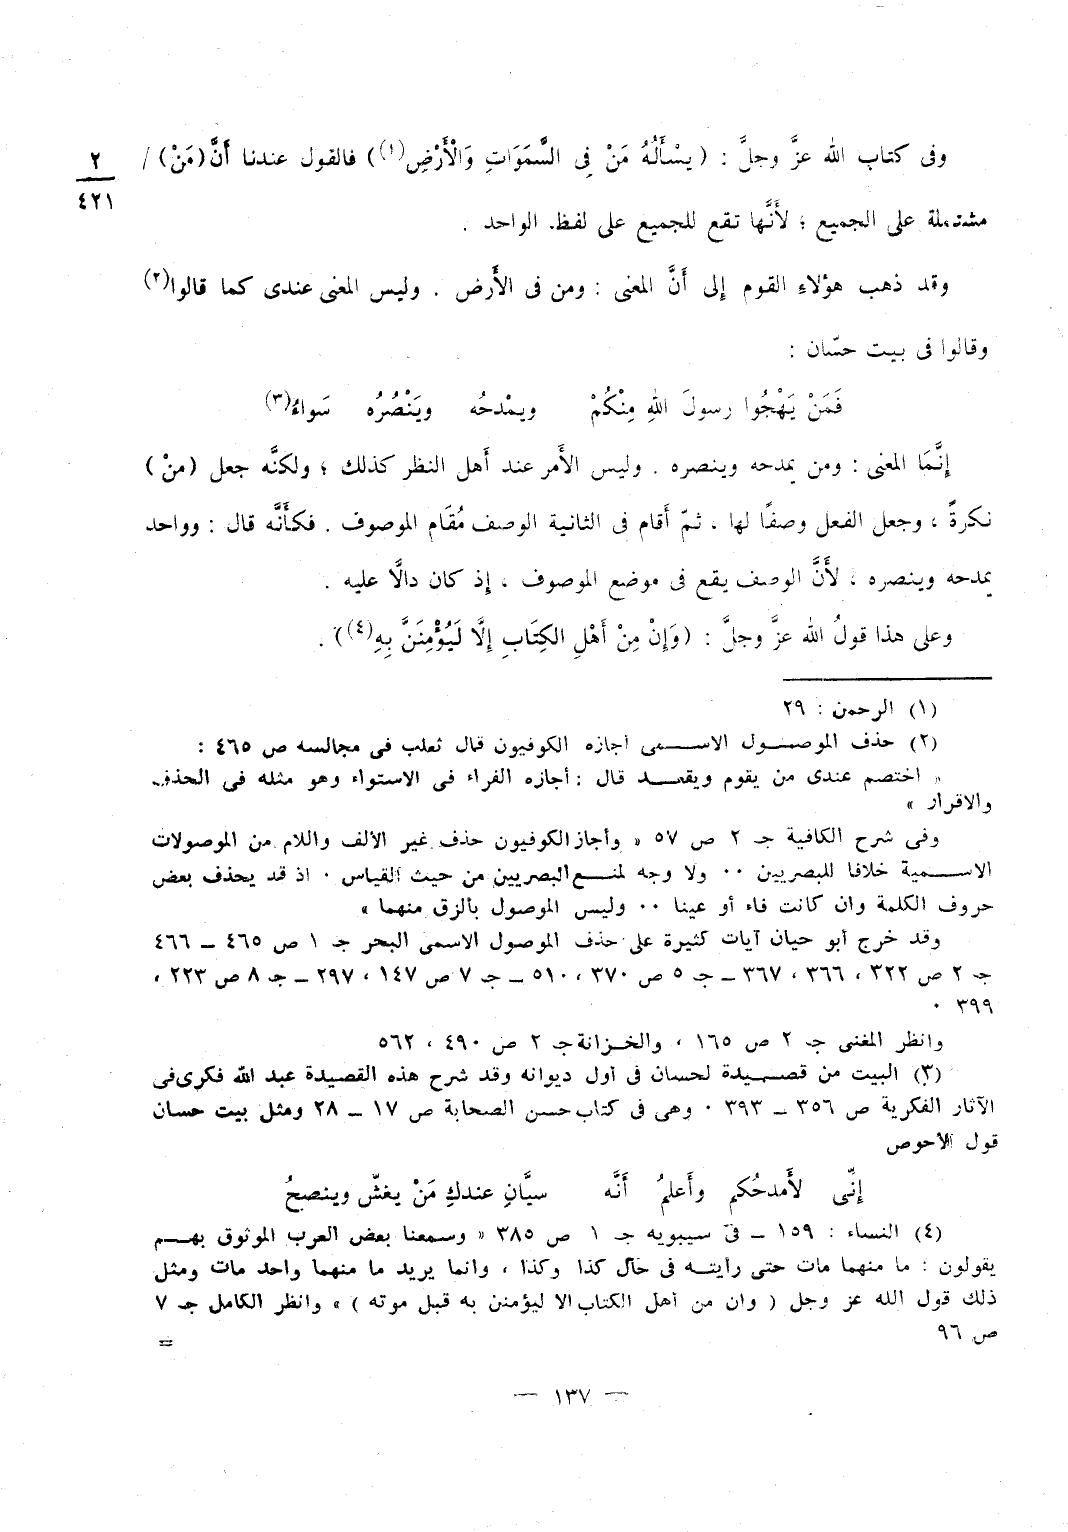 وفى كتاب الله عزَّ وجلَّ : ( يسْأَلُهُ مَنْ فِى السَّمَوَاتِ وَالْأَرْضِ(١) ) فالقول عندنا أَنَّ (مَنْ) /
٢
٤٢١
مشتملة على الجميع ؛ لأَنَّها تقع للجميع على لفظ الواحد .
وقد ذهب هؤلاءِ القوم إلى أَنَّ المعنى : ومن فى الأَرض . وليس المعنى عندى كما قالوا(٢)
وقالوا فى بيت حسّان :
فَمَنْ يَهْجُوا رسولَ اللهِ مِنْكُمْ ويمْدحُه ويَنْصُرُه سَواءُ(٣)
إنَّمَا المعنى : ومن يمدحه وينصره . وليس الأَمر عند أَهل النظر كذلك ؛ ولكنَّه جعل (منْ)
نكرةً ، وجعل الفعل وصفًا لها ، ثمّ أَقام فى الثانية الوصف مُقَام الموصوف . فكأَنَّه قال : وواحد
يمدحه وينصره ، لأَنَّ الوصف يقع فى موضع الموصوف ، إذ كان دالًّا عليه .
وعلى هذا قولُ الله عزَّ وجلَّ : (وَإِنْ مِنْ أَهْلِ الكِتَابِ إِلَّا لَيُؤْمِنَنَّ بِهِ(٤)) .
(١) الرحمن : ٢٩
(٢) حذف الموصول الاسمى أجازه الكوفيون قال ثعلب فى مجالسه ص ٤٦٥ :
« اختصم عندى من يقوم ويقعد قال : أجازه الفراء فى الاستواء وهو مثله فى الحذف
والاقرار »
وفى شرح الكافية جـ ٢ ص ٥٧ « وأجاز الكوفيون حذف غير الألف واللام من الموصولات
الاسمية خلافا للبصريين ٠٠ ولا وجه لمنع البصريين من حيث القياس ٠ اذ قد يحذف بعض
حروف الكلمة وان كانت فاء أو عينا ٠٠ وليس الموصول بألزق منهما »
وقد خرج أبو حيان آيات كثيرة على حذف الموصول الاسمى البحر جـ ١ ص ٤٦٥ – ٤٦٦
جـ ٢ ص ٣٢٢ ، ٣٦٦ ، ٣٦٧ – جـ ٥ ص ٣٧٠ ، ٥١٠ – جـ ٧ ص ١٤٧ ، ٢٩٧ – جـ ٨ ص ٢٢٣ ،
٣٩٩ ٠
وانظر المغنى جـ ٢ ص ١٦٥ ، والخزانة جـ ٢ ص ٤٩٠ ، ٥٦٢
(٣) البيت من قصيدة لحسان فى أول ديوانه وقد شرح هذه القصيدة عبد الله فكرى فى
الآثار الفكرية ص ٣٥٦ – ٣٩٣ ٠ وهى فى كتاب حسن الصحابة ص ١٧ – ٢٨ ومثل بيت حسان
قول الأحوص
إنِّى لأَمدحُكم وأَعلمُ أَنَّه سيَّانِ عندكِ مَنْ يغشّ وينصحُ
(٤) النساء : ١٥٩ – فى سيبويه جـ ١ ص ٣٨٥ « وسمعنا بعض العرب الموثوق بهم
يقولون : ما منهما مات حتى رأيته فى حال كذا وكذا ، وانما يريد ما منهما واحد مات ومثل
ذلك قول الله عز وجل ( وان من أهل الكتاب الا ليؤمنن به قبل موته ) » وانظر الكامل جـ ٧
ص ٩٦
=
— ١٣٧ —